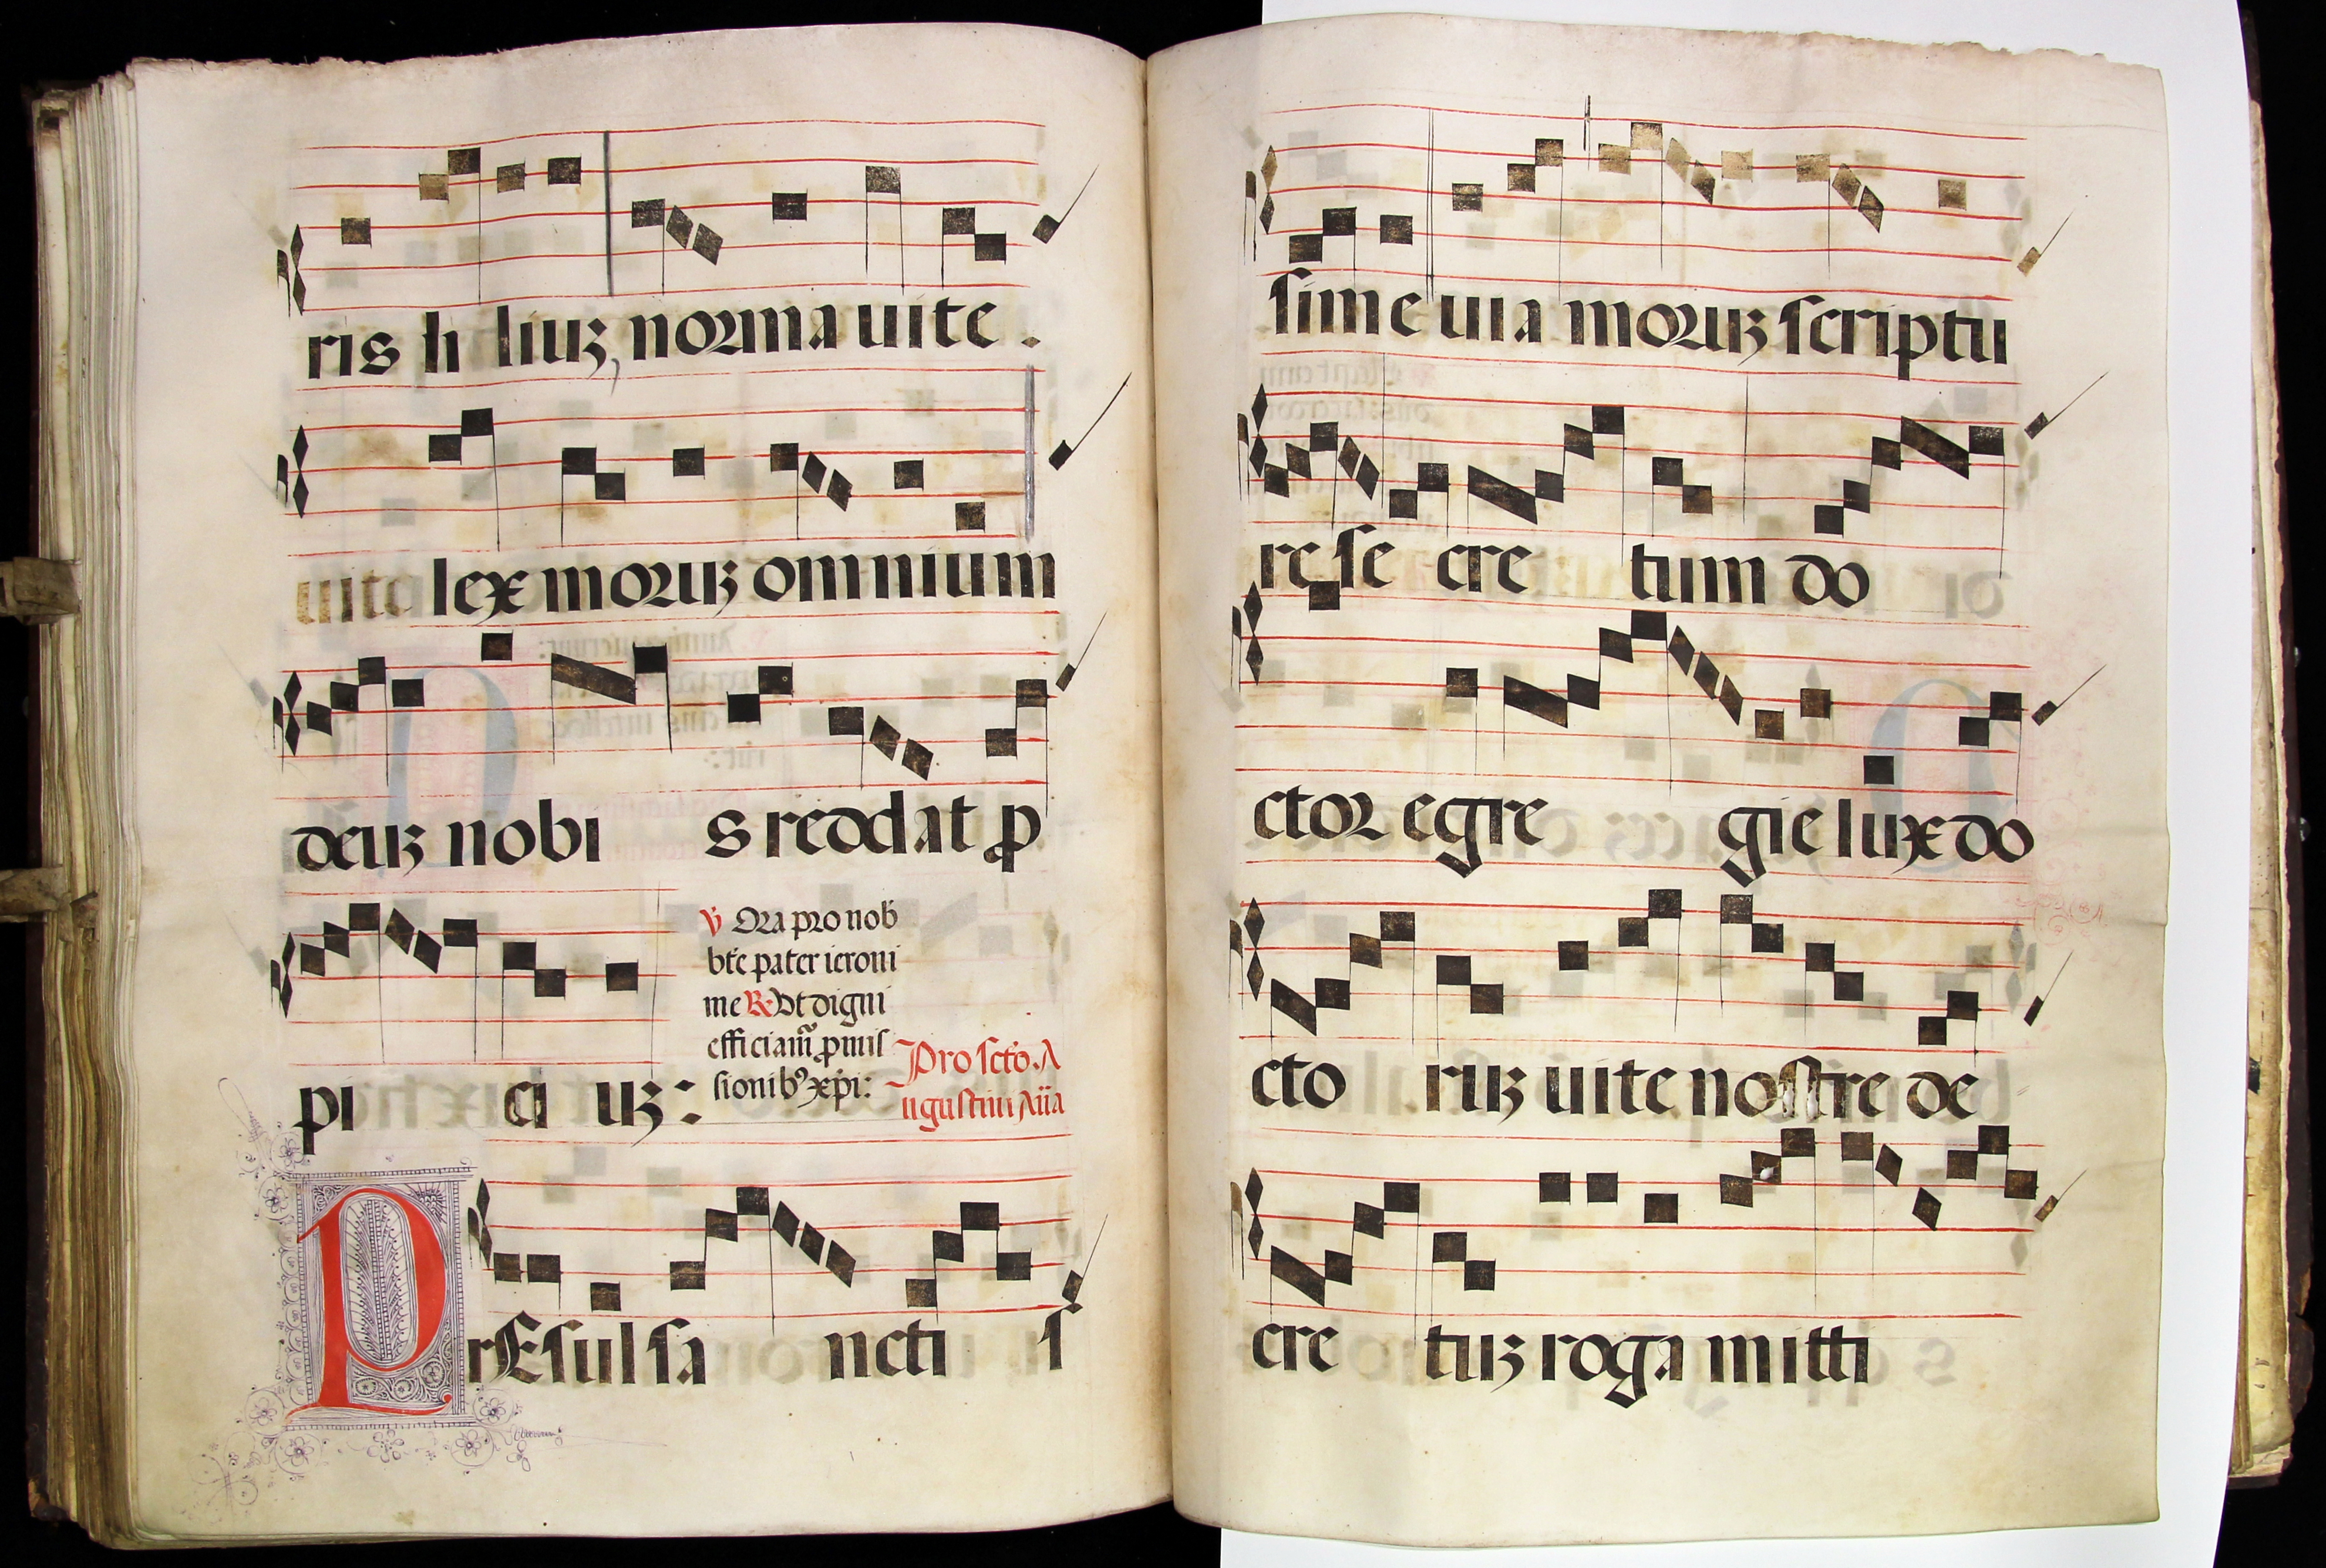 ris li liuʒ, norma uite.
uita lex moruʒ omnium
deuʒ nobi s reddat ꝓ
pi ci uʒ:
℣ Ora pro nob
bte pater ieroni
me ℞ Vt digni
efficiam̃ ꝓmis
sionibꝰ xp̄i:
Pro scto. A
ugustini Aña
PrEsul sa ncti s
sime uia moruʒ scriptu
re se cre tum do
ctor egre gie lux do
cto ruʒ uite nostre de
cre tuʒ roga mitti